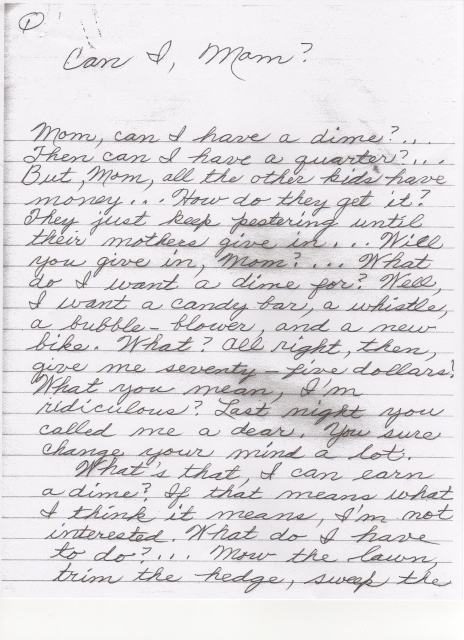 1
Can I, Mom?
Mom, can I have a dime?...
Then can I have a quarter?...
But, Mom, all the other kids have
money... How do they get it?
They just keep pestering until
their mothers give in... Will
you give in, Mom?... What
do I want a dime for? Well,
I want a candy bar, a whistle,
a bubble-blower, and a new
bike. What? All right, then,
give me seventy-five dollars!
What you mean, I'm
ridiculous? Last night you
called me a dear. You sure
change your mind a lot.
What's that, I can earn
a dime? If that means what
I think it means, I'm not
interested. What do I have
to do?... Mow the lawn,
trim the hedge, sweep the